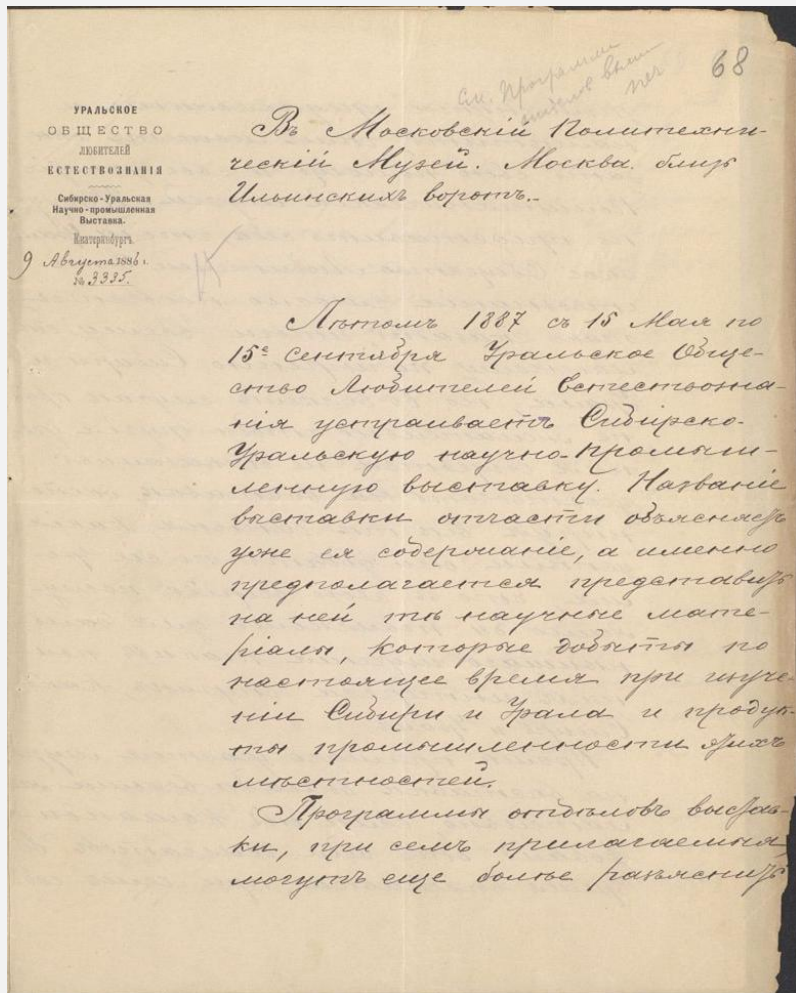 68
см. Программы
отделов выст
УРАЛЬСКОЕ
ОБЩЕСТВО
ЛЮБИТЕЛЕЙ
ЕСТЕСТВОЗНАНІЯ
Сибирско-Уральская
Научно-промышленная
Выставка.
Екатеринбургъ.
9 Августа 1886 г.
№ 3335.
Въ Московскій Политехни-
ческій Музей. Москва. близь
Ильинскихъ воротъ.
Лѣтомъ 1887 съ 15 Мая по
15е Сентября Уральское Обще-
ство Любителей Естествозна-
нія устраиваетъ Сибирско-
Уральскую научно-промыш-
ленную выставку. Названіе
выставки отчасти объясняетъ
уже ея содержаніе, а именно
предполагается представить
на ней тѣ научные мате-
ріалы, которые добыты по
настоящее время при изуче-
ніи Сибири и Урала и продук-
ты промышленности этихъ
мѣстностей.
Программы отдѣловъ выстав-
ки, при семъ прилагаемыя,
могутъ еще болѣе разъяснить